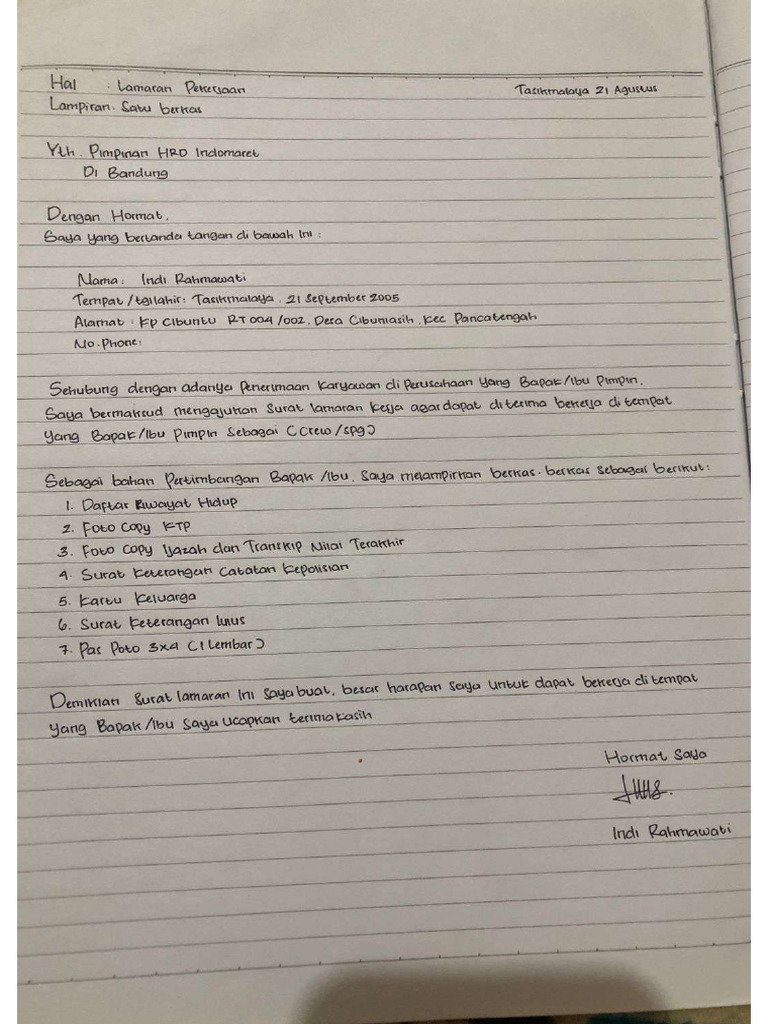 Hal : Lamaran Pekerjaan
Tasikmalaya 21 Agustus
Lampiran : Satu berkas
Yth. Pimpinan HRD Indomaret
Di Bandung
Dengan Hormat,
Saya yang bertanda tangan di bawah ini :
Nama : Indi Rahmawati
Tempat/tgllahir : Tasikmalaya, 21 September 2005
Alamat : Kp Cibuntu RT 004/002, Desa Cibuniasih, Kec Pancatengah
No. Phone:
Sehubung dengan adanya Penerimaan Karyawan di Perusahaan yang Bapak/Ibu Pimpin,
Saya bermaksud mengajukan Surat lamaran Kerja agar dapat diterima bekerja di tempat
yang Bapak/Ibu Pimpin Sebagai (Crew/spg)
Sebagai bahan Pertimbangan Bapak/Ibu, Saya melampirkan berkas-berkas sebagai berikut:
1. Daftar Riwayat Hidup
2. Foto Copy KTP
3. Foto Copy Ijazah dan Transkip Nilai Terakhir
4. Surat Keterangan Catatan Kepolisian
5. Kartu Keluarga
6. Surat Keterangan lulus
7. Pas Poto 3x4 (1 Lembar)
Demikian Surat lamaran ini Saya buat, besar harapan saya untuk dapat bekerja di tempat
yang Bapak/Ibu Saya ucapkan terimakasih
Hormat Saya
Indi Rahmawati